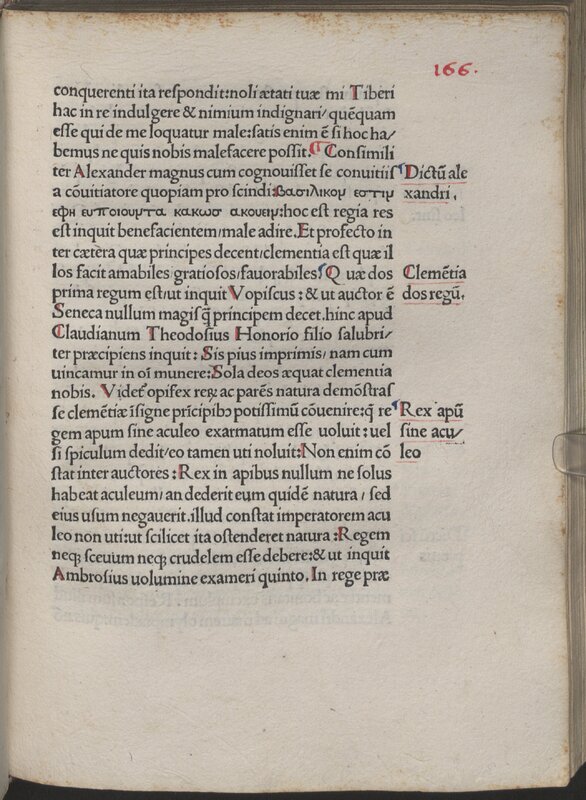 166.
conquerenti ita respondit:noli ætati tuæ mi Tiberi
hac in re indulgere & nimium indignari/quēquam
esse qui de me loquatur male:satis enim ē si hoc ha/
bemus ne quis nobis malefacere possit. Consimili
ter Alexander magnus cum cognouisset se conuitiis
a cōuitiatore quopiam pro scindi:βασιλικον εστιν
εφη ευποιουντα κακωσ ακουειν:hoc est regia res
est inquit benefacientem/male adire. Et profecto in
ter cætera quæ principes decent/clementia est quæ il
los facit amabiles/gratiosos/fauorabiles. Quæ dos
prima regum est/ut inquit Vopiscus:& ut auctor ē
Seneca nullum magisq̄ principem decet.hinc apud
Claudianum Theodosius Honorio filio salubri/
ter præcipiens inquit: Sis pius imprimis/nam cum
uincamur in oī munere:Sola deos æquat clementia
nobis. Videt opifex rerū ac parēs natura demōstras
se clemētiæ īsigne prīcipibꝫ potissimū cōuenire:q̄ re
gem apum sine aculeo exarmatum esse uoluit:uel
si spiculum dedit/eo tamen uti noluit:Non enim cō
stat inter auctores:Rex in apibus nullum ne solus
habeat aculeum/an dederit eum quidē natura/sed
eius usum negauerit.illud constat imperatorem acu
leo non uti:ut scilicet ita ostenderet natura:Regem
neqꝫ sceuium neqꝫ crudelem esse debere:& ut inquit
Ambrosius uolumine exameri quinto. In rege præ
Dictū ale
xandri.
Clemētia
dos regū.
Rex apū
sine acu/
leo